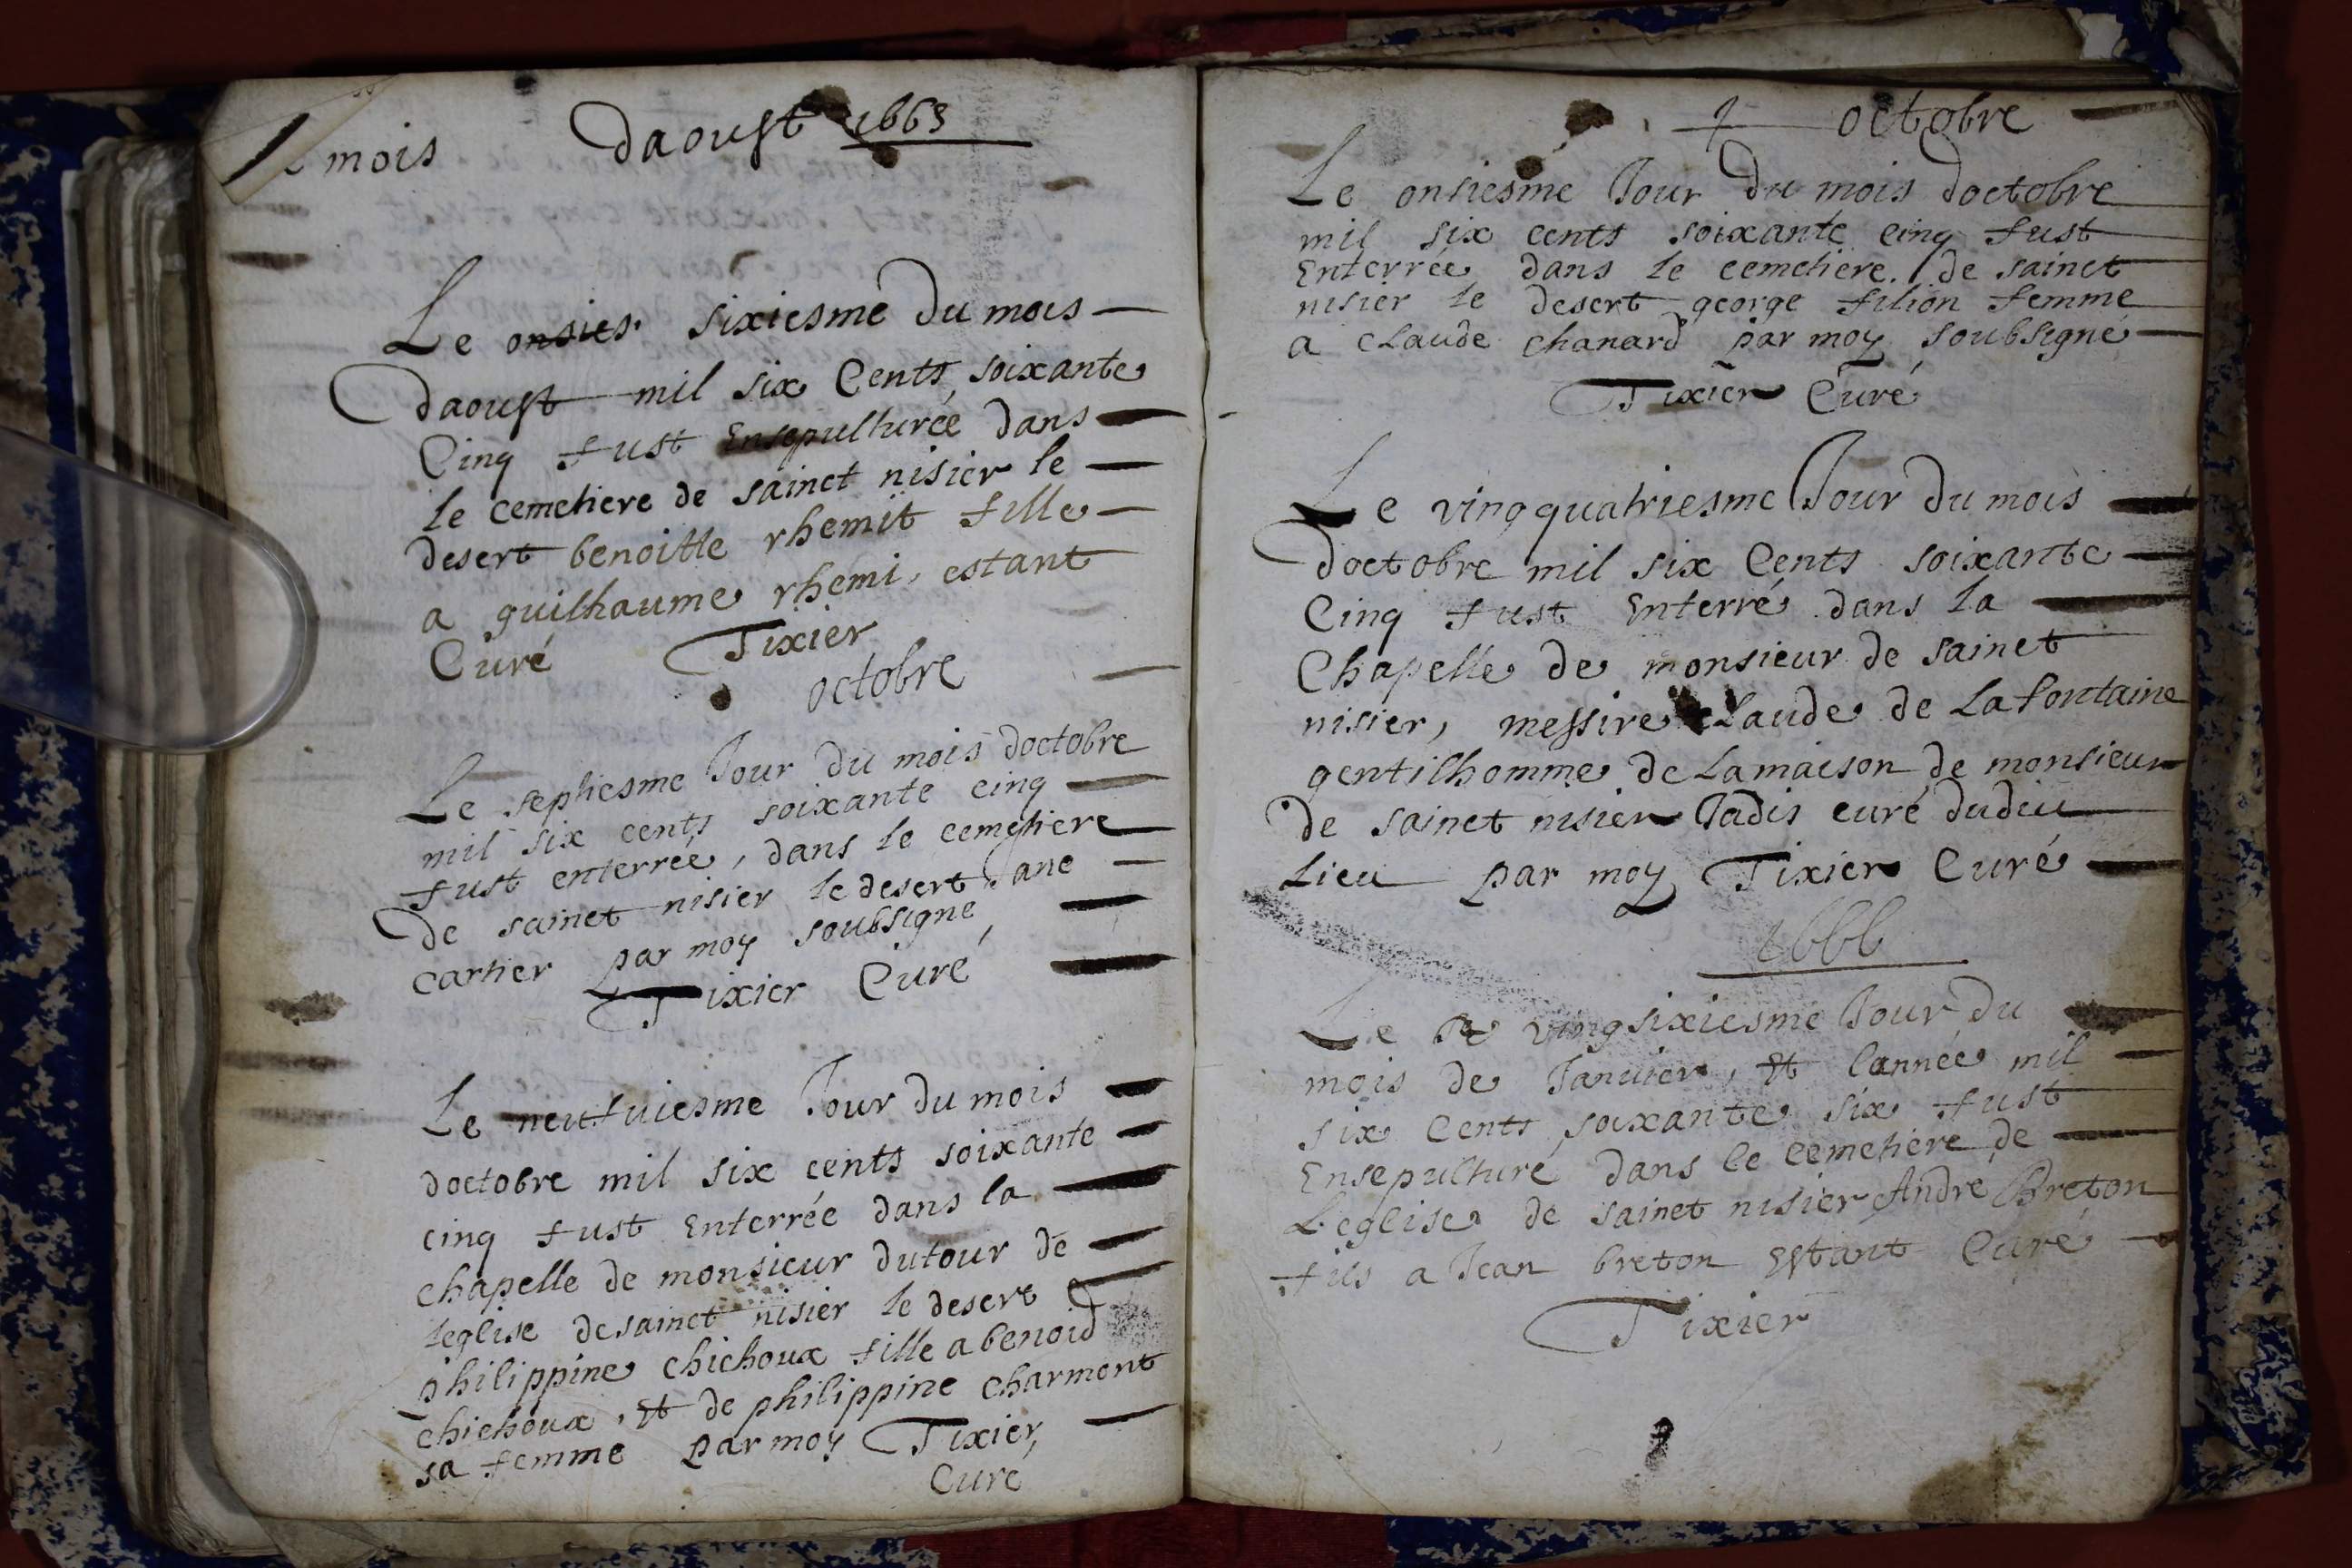 mois daoust 1665
Le onsies sixiesme du mois
daoust mil six Cents soixante
Cinq fust Ensepulturée dans
le cemetiere de sainct nisier le
desert benoitte rhemit fille
a guilhaume rhemi, estant
Curé Tixier
octobre
Le septiesme Jour du mois doctobre
mil six cents soixante cinq
fust enterrée, dans le cemetiere
de sainct nisier le desert Jane
cartier par moy soubsigné,
Tixier Curé
Le neufuiesme Jour du mois
doctobre mil six cents soixante
cinq fust Enterrée dans la
chapelle de monsieur dutour de
leglise de sainct nisier le desert
philippine chichoux fille a benoid
chichoux, Et de philippine charmont
sa femme par moy Tixier,
Curé
octobre
Le onsiesme Jour du mois doctobre
mil six cents soixante cinq fust
Enterrée dans le cemetiere de sainct
nisier le desert george filion femme
a claude chanard par moy soubsigné
Tixier Curé
Le vingquatriesme Jour du mois
doctobre mil six Cents soixante
Cinq fust Enterré dans la
Chapelle de monsieur de sainct
nisier, messire claude de Lafontaine
gentilhomme de Lamaison de monsieur
de sainct nisier Jadis curé dudict
Lieu par moy Tixier Curé
1666
Le vingsixiesme Jour du
mois de Januier, Et lannée mil
six Cents soixante six fust
Ensepulturé dans le cemetiere de
Leglise de sainct nisier André Breton
fils a Jean breton Estant Curé
Tixier